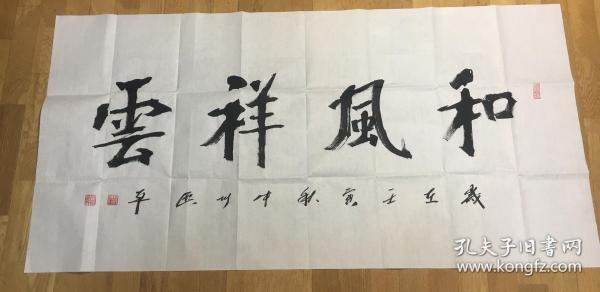 和風祥雲
歲在壬寅秋仲
孔夫子旧書网
www.kongfz.com